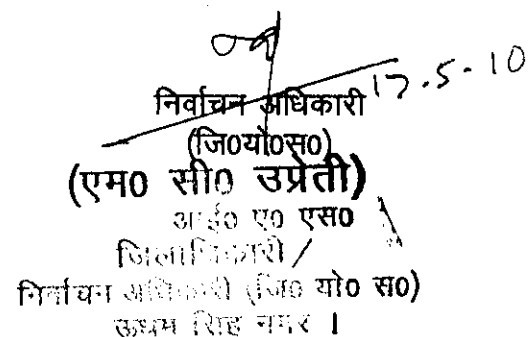 17.5.10
निर्वाचन अधिकारी
(जि0यो0स0)
(एम0 सी0 उप्रेती)
आई0 ए0 एस0
जिलाधिकारी /
निर्वाचन अधिकारी (जि0 यो0 स0)
ऊधम सिंह नगर ।